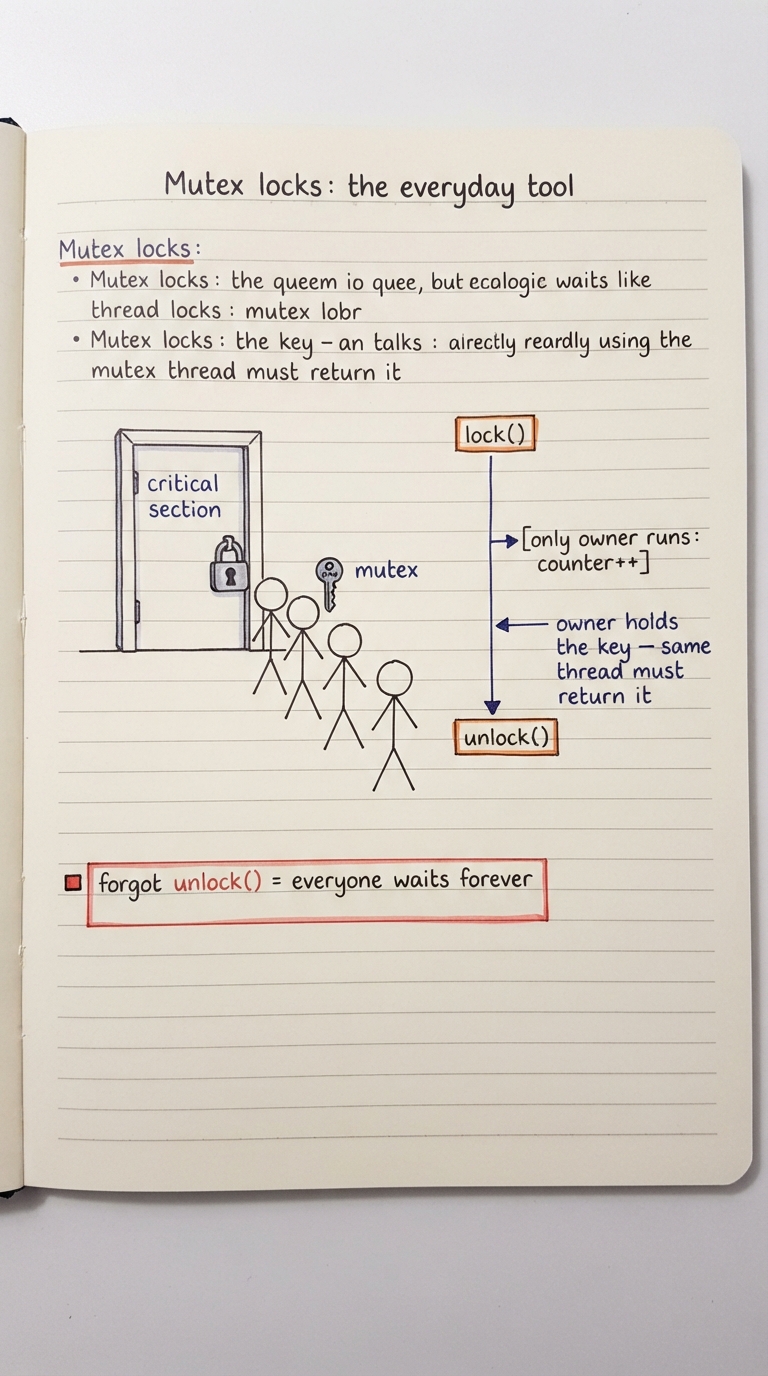 Mutex locks: the everyday tool
Mutex locks:
• Mutex locks: the queem io quee, but ecalogic waits like
thread locks: mutex lobr
• Mutex locks: the key – an talks: airectly reardly using the
mutex thread must return it
critical
section
mutex
lock()
[only owner runs:
counter++]
owner holds
the key – same
thread must
return it
unlock()
forgot unlock() = everyone waits forever